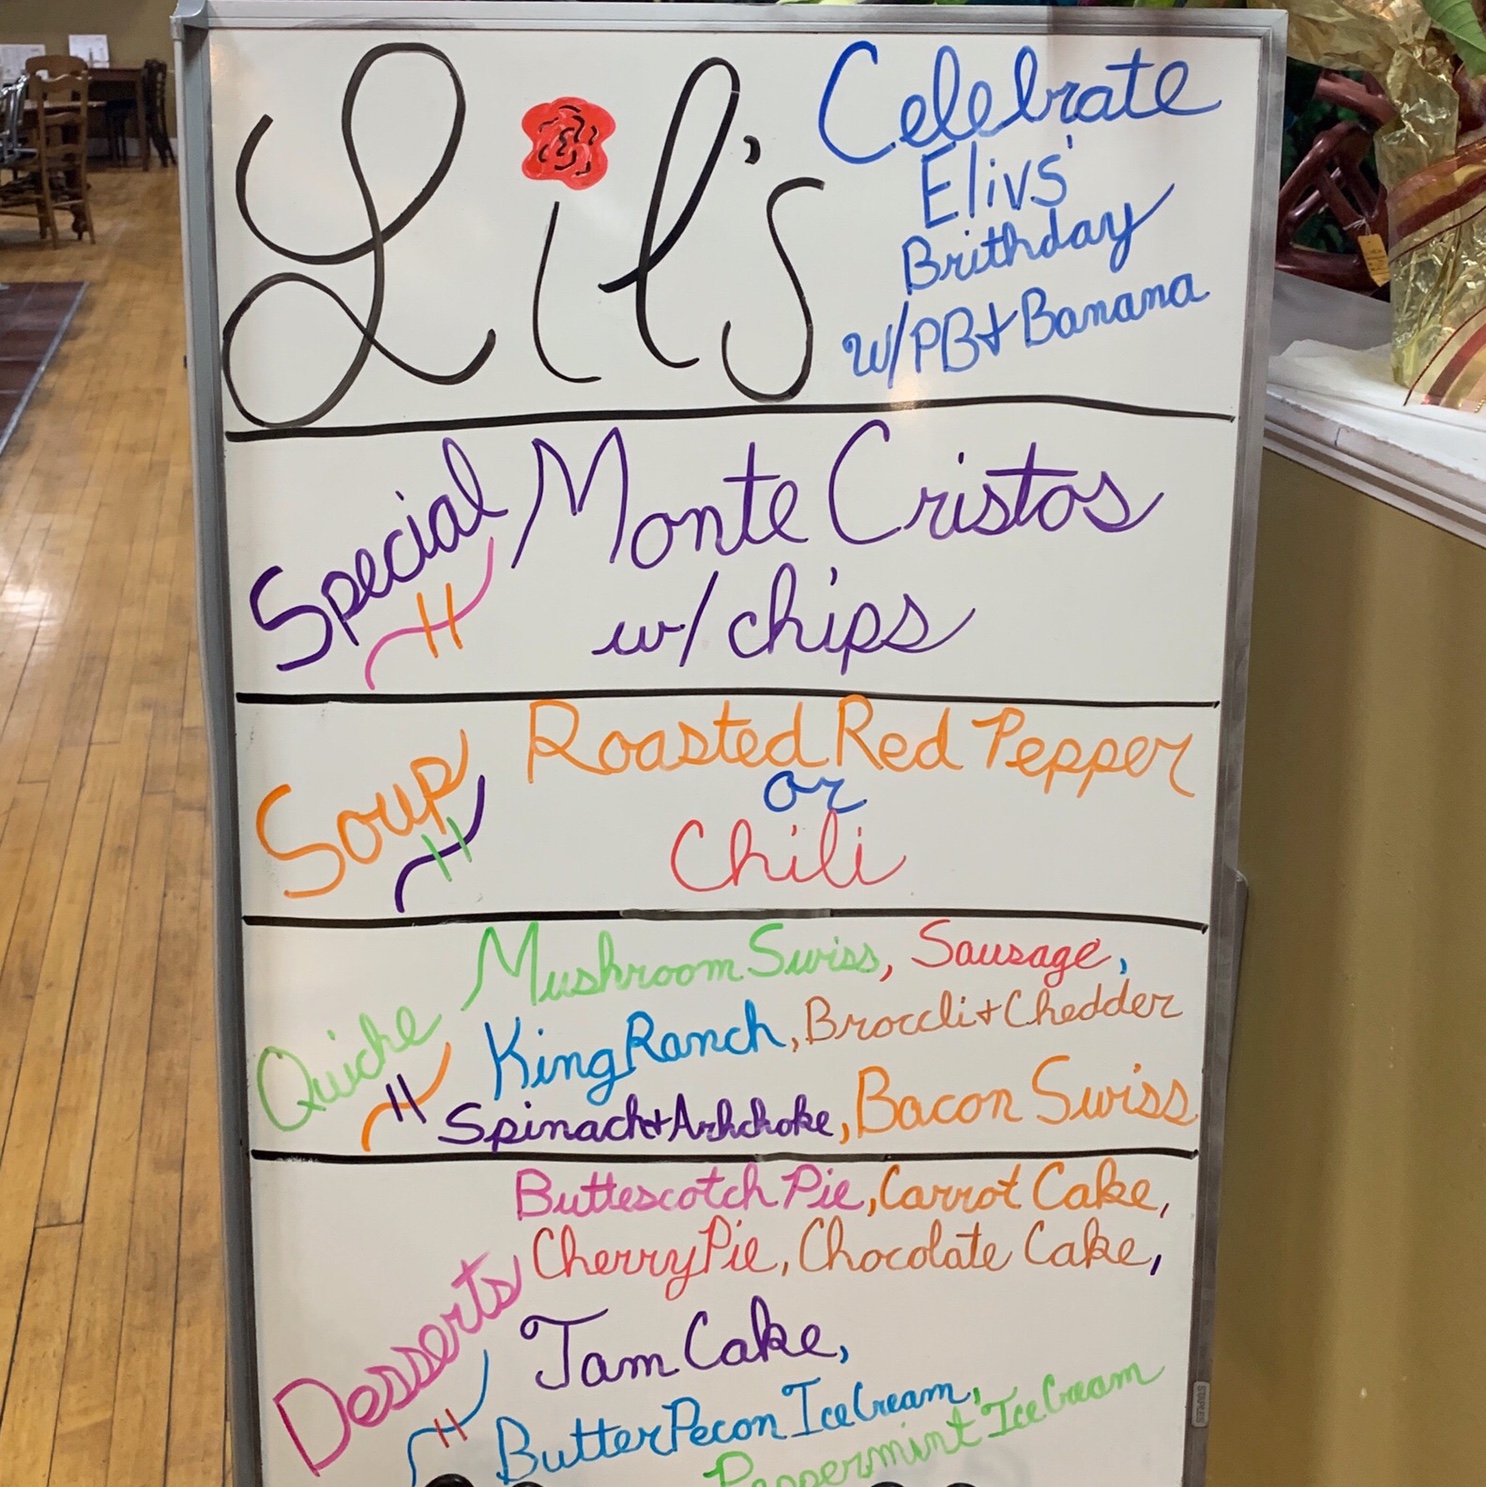 Lil's
Celebrate
Elivs'
Brithday
w/PB+Banana
Special
Monte Cristos
w/ chips
Soup
Roasted Red Pepper
or
Chili
Quiche
Mushroom Swiss, Sausage,
King Ranch, Broccli+Chedder
Spinach+Arhchoke, Bacon Swiss
Desserts
Buttescotch Pie, Carrot Cake,
Cherry Pie, Chocolate Cake,
Jam Cake,
Butter Pecon Ice Cream,
Peppermint Ice Cream